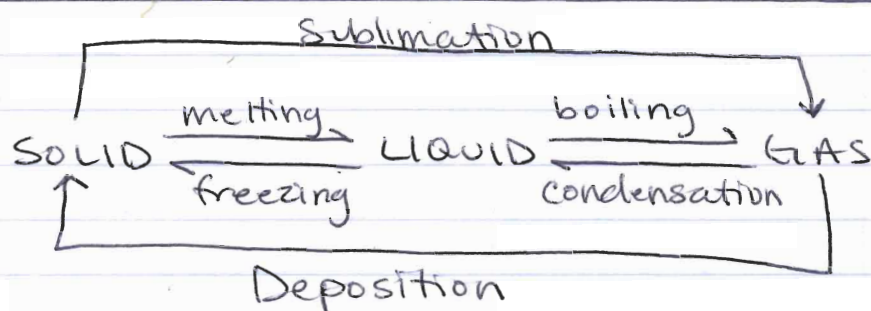 Sublimation
melting boiling
SOLID LIQUID GAS
freezing condensation
Deposition